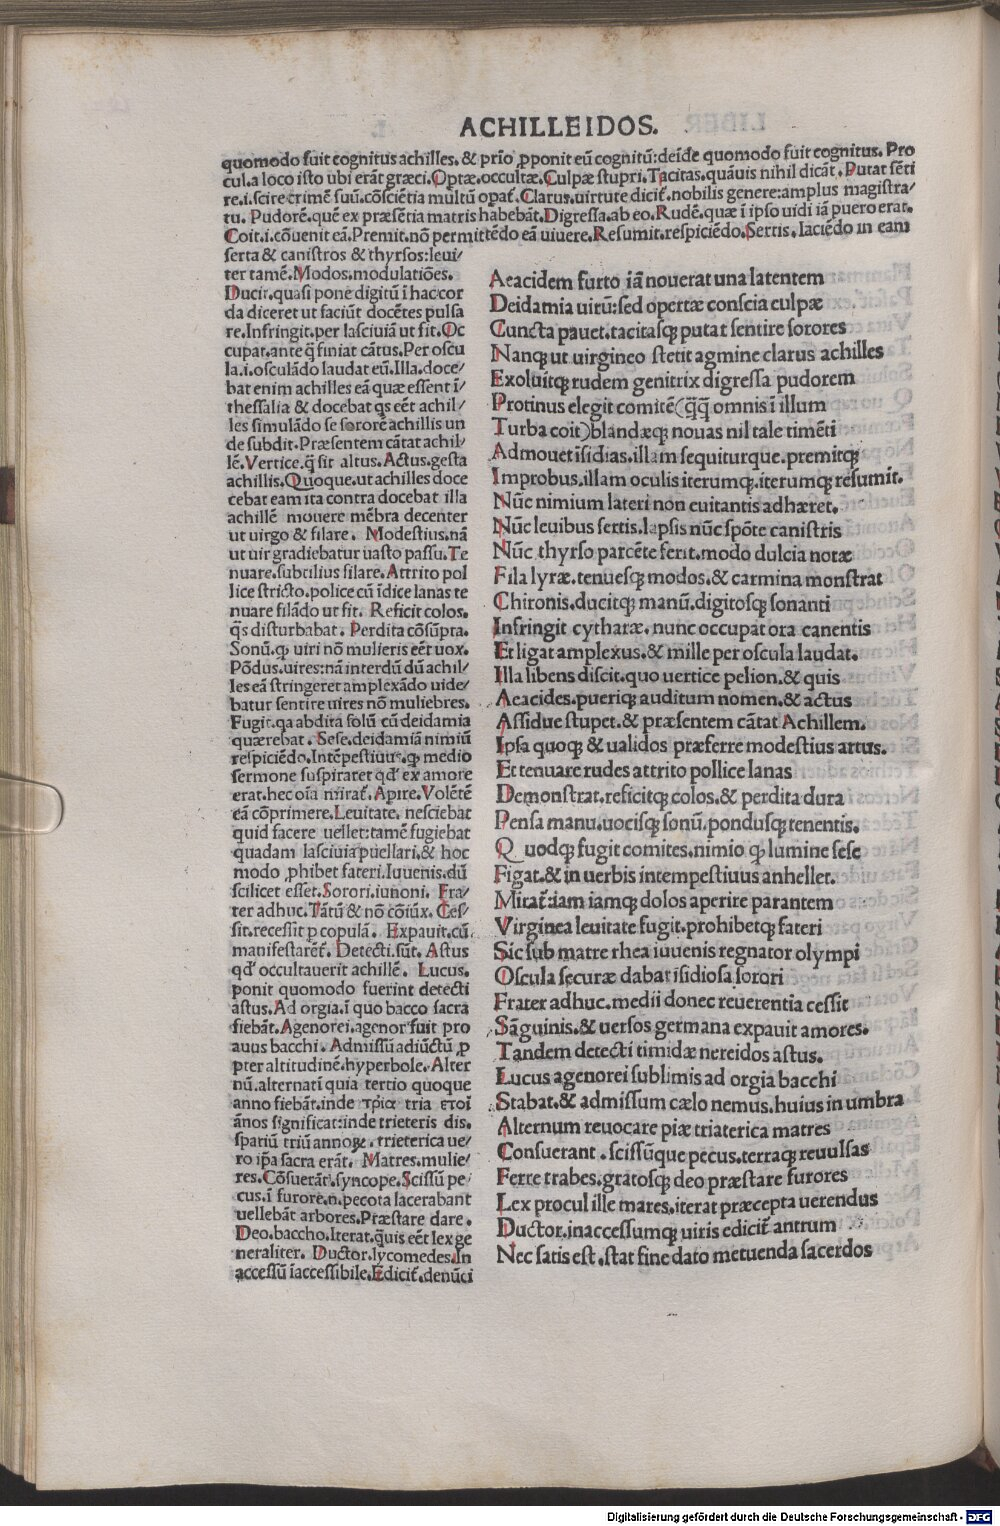 ACHILLEIDOS.
quomodo fuit cognitus achilles. & prīo ꝓponit eū cognitū: deīde quomodo fuit cognitus. Pro
cul. a loco isto ubi erāt græci. Optæ. occultæ. Culpæ stupri. Tacitas. quāuis nihil dicāt. Putat sēti
re. i. scire crimē suū. cōsciētia multū opaꝉ. Clarus. uirtute diciꝉ. nobilis genere: amplus magistra⸗
tu. Pudorē. quē ex præsētia matris habebāt. Digressa. ab eo. Rudē. quæ ī ipso uidi iā puero erat.
Coit. i. cōuenit eā. Premit. nō permittēdo eā uiuere. Resumit. respiciēdo. Sertis. Iaciēdo in eam
serta & canistros & thyrsos: leui⸗
ter tamē. Modos. modulatiōes.
Ducit. quasi pone digitū ī hac cor
da diceret ut faciūt docētes pulsa
re. Infringit. per lasciuiā ut fit. Oc
cupat. ante q̄ finiat cātus. Per oscu
la. i. osculādo laudat eū. Illa. doce⸗
bat enim achilles eā quæ essent ī⸗
thessalia & docebat qs eēt achil⸗
les simulādo se sororē achillis un
de subdit. Præsentem cātat achil⸗
lē. Vertice. q̄ sit altus. Actus. gesta
achillis. Quoque. ut achilles doce
cebat eam ita contra docebat illa
achillē mouere mēbra decenter
ut uirgo & filare. Modestius. nā
ut uir gradiebatur uasto passu. Te
nuare. subtilius filare. Attrito pol
lice stricto. police cū īdice lanas te
nuare filādo ut fit. Reficit colos.
q̄s disturbabat. Perdita cōsūpta.
Sonū. ꝙ uiri nō mulieris eēt uox.
Pōdus. uires: nā interdū dū achil⸗
les eā stringeret amplexādo uide⸗
batur sentire uires nō muliebres.
Fugit. qa abdita solū cū deidamia
quærebat. Sese. deidamiā nimiū
respiciēdo. Intēpestiuus. ꝙ medio
sermone suspiraret qd' ex amore
erat. hec oīa miraꝉ. Apire. Volētē
eā cōprimere. Leuitate. nesciebat
quid facere uellet: tamē fugiebat
quadam lasciuia puellari. & hoc
modo ꝓhibet fateri. Iuuenis. dū
scilicet esset. Sorori. iunoni. Fra⸗
ter adhuc. Tātū & nō cōiūx. Ces⸗
sit. recessit p copulā. Expauit. cū
manifestareꝉ. Detecti. sūt. Astus
qd' occultauerit achillē. Lucus.
ponit quomodo fuerint detecti
astus. Ad orgia. ī quo bacco sacra
fiebāt. Agenorei. agenor fuit pro
auus bacchi. Admissū adiūctū ꝓ
pter altitudinē. hyperbole. Alter
nū. alternati quia tertio quoque
anno fiebāt. inde τρία tria ετοι
ānos significat: inde trieteris dis.
spatiū triū annoꝝ. trieterica ue⸗
ro ip̄a sacra erāt. Matres. mulie⸗
res. Cōsuerāt. syncope. Scissū pe⸗
cus. ī furore. n. pecota lacerabant
uellebāt arbores. Præstare dare.
Deo. baccho. Iterat. q̄uis eēt lex ge
neraliter. Ductor. lycomedes. In
accessū īaccessibile. Ediciꝉ. denūci
Aeacidem furto iā nouerat una latentem
Deidamia uirū: sed opertæ conscia culpæ
Cuncta pauet. tacitasqꝫ putat sentire sorores
Nanqꝫ ut uirgineo stetit agmine clarus achilles
Exoluitqꝫ rudem genitrix digressa pudorem
Protinus elegit comitē (q̄q̄ omnis ī illum
Turba coit) blandæqꝫ nouas nil tale timēti
Admouet īsidias. illam sequiturque. premitqꝫ
Improbus. illam oculis iterumqꝫ. iterumqꝫ resumit.
Nūc nimium lateri non euitantis adhæret.
Nūc leuibus sertis. lapsis nūc spōte canistris
Nūc thyrso parcēte ferit. modo dulcia notæ
Fila lyræ. tenuesqꝫ modos. & carmina monstrat
Chironis. ducitqꝫ manū. digitosqꝫ sonanti
Infringit cytharæ. nunc occupat ora canentis
Et ligat amplexus. & mille per oscula laudat.
Illa libens discit. quo uertice pelion. & quis
Aeacides. pueriqꝫ auditum nomen. & actus
Assidue stupet. & præsentem cātat Achillem.
Ipsa quoqꝫ & ualidos præferre modestius artus.
Et tenuare rudes attrito pollice lanas
Demonstrat. reficitqꝫ colos. & perdita dura
Pensa manu. uocisqꝫ sonū. pondusqꝫ tenentis.
Quodqꝫ fugit comites. nimio ꝙ lumine sese
Figat. & in uerbis intempestiuus anhellet.
Miraꝉ. iam iamqꝫ dolos aperire parantem
Virginea leuitate fugit. prohibetqꝫ fateri
Sic sub matre rhea iuuenis regnator olympi
Oscula securæ dabat īsidiosa sorori
Frater adhuc. medii donec reuerentia cessit
Sāguinis. & uersos germana expauit amores.
Tandem detecti timidæ nereidos astus.
Lucus agenorei sublimis ad orgia bacchi
Stabat. & admissum cælo nemus. huius in umbra
Alternum reuocare piæ triaterica matres
Consuerant. scissūque pecus. terraqꝫ reuulsas
Ferre trabes. gratosqꝫ deo præstare furores
Lex procul ille mares. iterat præcepta uerendus
Ductor. inaccessumqꝫ uiris ediciꝉ antrum
Nec satis est. stat fine dato metuenda sacerdos
Digitalisierung gefördert durch die Deutsche Forschungsgemeinschaft - DFG